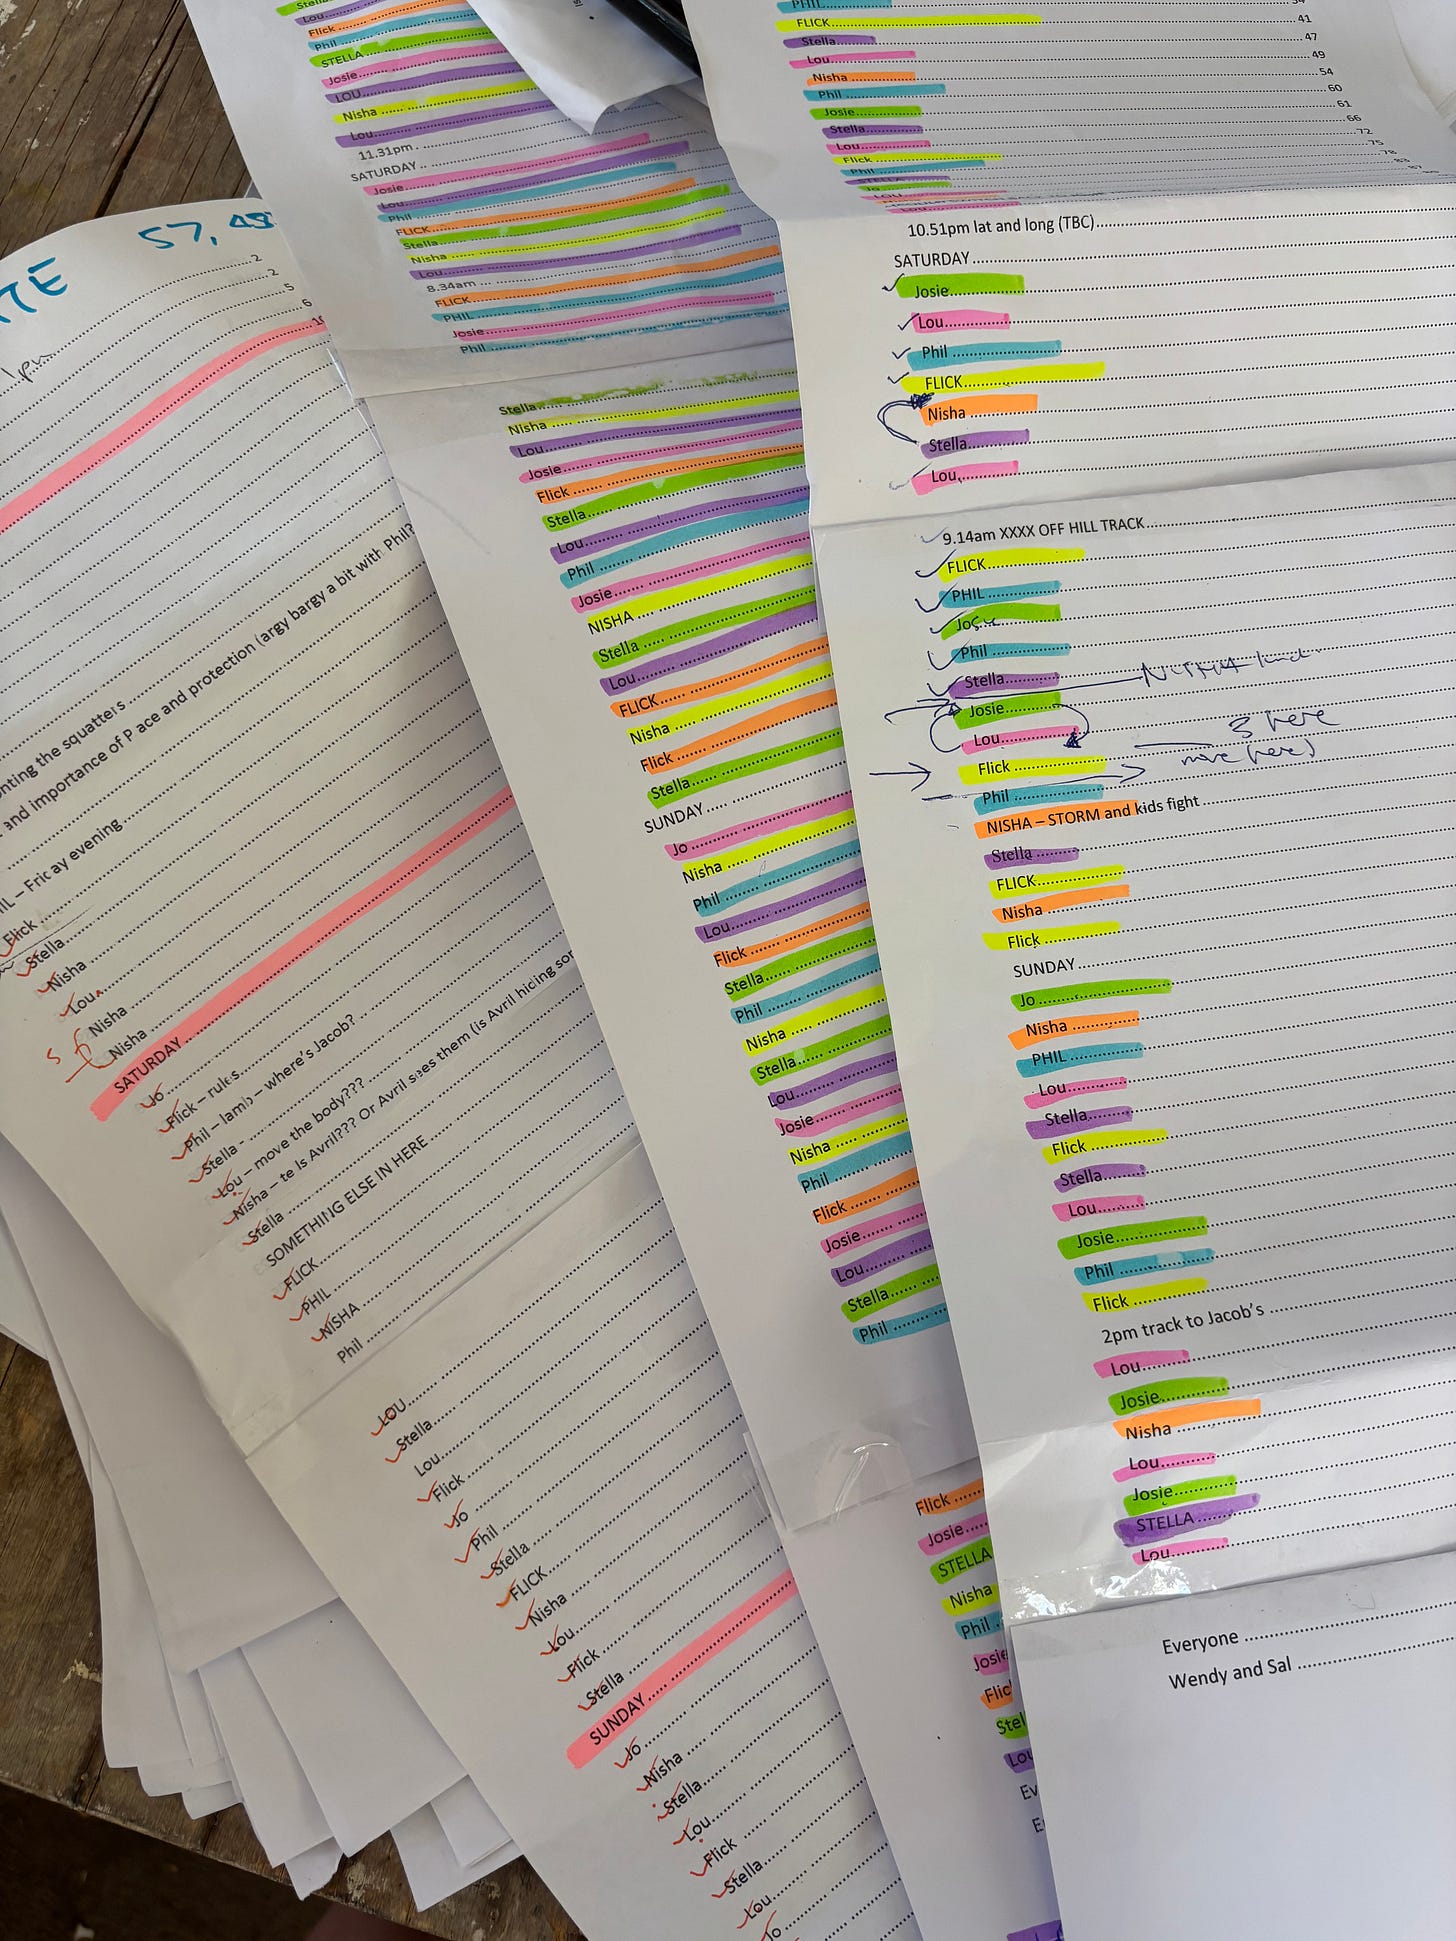 57,
2
2
5
6
nting the squatters
and importance of P ace and protection (argy bargy a bit with Phil?
IL – Friday evening
Flick
Stella
Nisha
Lou
Nisha
Nisha
SATURDAY
Jo
Flick – rules
Phil – lamb – where's Jacob?
Stella -
Lou – move the body???
Nisha – te Is Avril??? Or Avril sees them (is Avril hiding
Stella
SOMETHING ELSE IN HERE
FLICK
PHIL
NISHA
Phil
LOU
Stella
Lou
Flick
Jo
Phil
Stella
FLICK
Nisha
Lou
Flick
Stella
SUNDAY
Jo
Nisha
Stella
Lou
Flick
Stella
Lou
Jo
Stella
Lou
Flick
Phil
STELLA
Josie
LOU
Nisha
Lou
11.31pm
SATURDAY
Josie
Lou
Phil
FLICK
Stella
Nisha
Lou
8.34am
FLICK
PHIL
Josie
Phil
Stella
Nisha
Lou
Josie
Flick
Stella
Lou
Phil
Josie
NISHA
Stella
Lou
FLICK
Nisha
Flick
Stella
SUNDAY
Jo
Nisha
Phil
Lou
Flick
Stella
Phil
Nisha
Stella
Lou
Josie
Nisha
Phil
Flick
Josie
Lou
Stella
Phil
Flick
Josie
STELLA
Nisha
Phil
Josie
Flic
Stel
Lou
Ev
E
PHIL 34
FLICK 41
Stella 47
Lou 49
Nisha 54
Phil 60
Josie 61
Stella 66
Lou 72
Flick 75
Phil 78
STELLA 83
Jo
10.51pm lat and long (TBC)
SATURDAY
Josie
Lou
Phil
FLICK
Nisha
Stella
Lou
9.14am XXXX OFF HILL TRACK
FLICK
PHIL
Josie
Phil
Stella
Josie
Lou
3 here
Flick
move here)
Phil
NISHA – STORM and kids fight
Stella
FLICK
Nisha
Flick
SUNDAY
Jo
Nisha
PHIL
Lou
Stella
Flick
Stella
Lou
Josie
Phil
Flick
2pm track to Jacob's
Lou
Josie
Nisha
Lou
Josie
STELLA
Lou
Everyone
Wendy and Sal